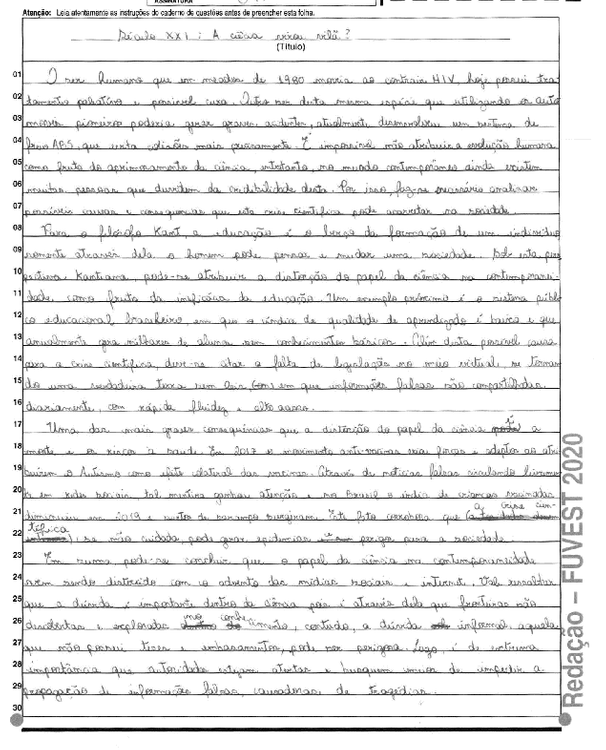 ASSINATURA
Atenção: Leia atentamente as instruções do caderno de questões antes de preencher esta folha.
Século XXI: A ciência virou vilã?
(Título)
01 O ser humano que em meados de 1980 morria ao contrair HIV, hoje possui tra-
02 tamento paliativo e possível cura. Outro ser desta mesma espécie que utilizando os auto
03 móveis pioneiros poderia gerar graves acidentes, atualmente, desenvolveu um sistema de
04 freio ABS que evita colisões mais precisamente. É impossível não atribuir a evolução humana
05 como fruto do aprimoramento da ciência, entretanto, no mundo contemporâneo ainda existem
06 muitas pessoas que duvidem da credibilidade desta. Por isso, faz-se necessário analisar
07 possíveis causas e consequências que esta crise científica pode acarretar na sociedade.
08 Para o filósofo Kant, a educação é o berço da formação de um indivíduo
09 somente através dela o homem pode pensar e mudar uma sociedade. Sob esta pers
10 pectiva Kantiana, pode-se atribuir a distorção do papel da ciência na contemporanei-
11 dade, como fruto da ineficácia da educação. Um exemplo próximo é o sistema públi
12 co educacional brasileiro em que o índice de qualidade de aprendizado é baixo e que
13 anualmente gera milhares de alunos sem conhecimentos básicos. Além desta possível causa
14 para a crise científica, deve-se citar a falta de legislação no meio virtual, se tornan
15 do uma verdadeira terra sem leis, em que informações falsas são compartilhadas
16 diariamente, com rápida fluidez e alto acesso.
17 Uma das mais graves consequências que a distorção do papel da ciência é a
18 morte e os riscos à saúde. Em 2017 o movimento anti-vacinas criou forças e adeptos ao atri
19 buírem o Autismo como efeito colateral das vacinas. Através de notícias falsas circulando livremen
20 te em redes sociais, tal mentira ganhou atenção e no Brasil o índice de crianças vacinadas
21 diminuiu em 2019 e surtos de sarampo surgiram. Este fato corrobora que a crise cien-
22 tífica se não cuidada pode gerar epidemias perigos para a sociedade.
23 Em suma pode-se concluir que o papel da ciência na contemporaneidade
24 vem sendo distorcido com o advento das mídias sociais e internet. Vale ressaltar
25 que a dúvida é importante dentro da ciência pois é através dela que fronteiras são
26 descobertas e exploradas no conhecimento, contudo, a dúvida informal, aquela
27 que não possui teses e embasamentos, pode ser perigosa. Logo, é de extrema
28 importância que autoridades estejam atentas e busquem meios de impedir a
29 propagação de informações falsas, causadoras, de tragédias.
30
Redação – FUVEST 2020